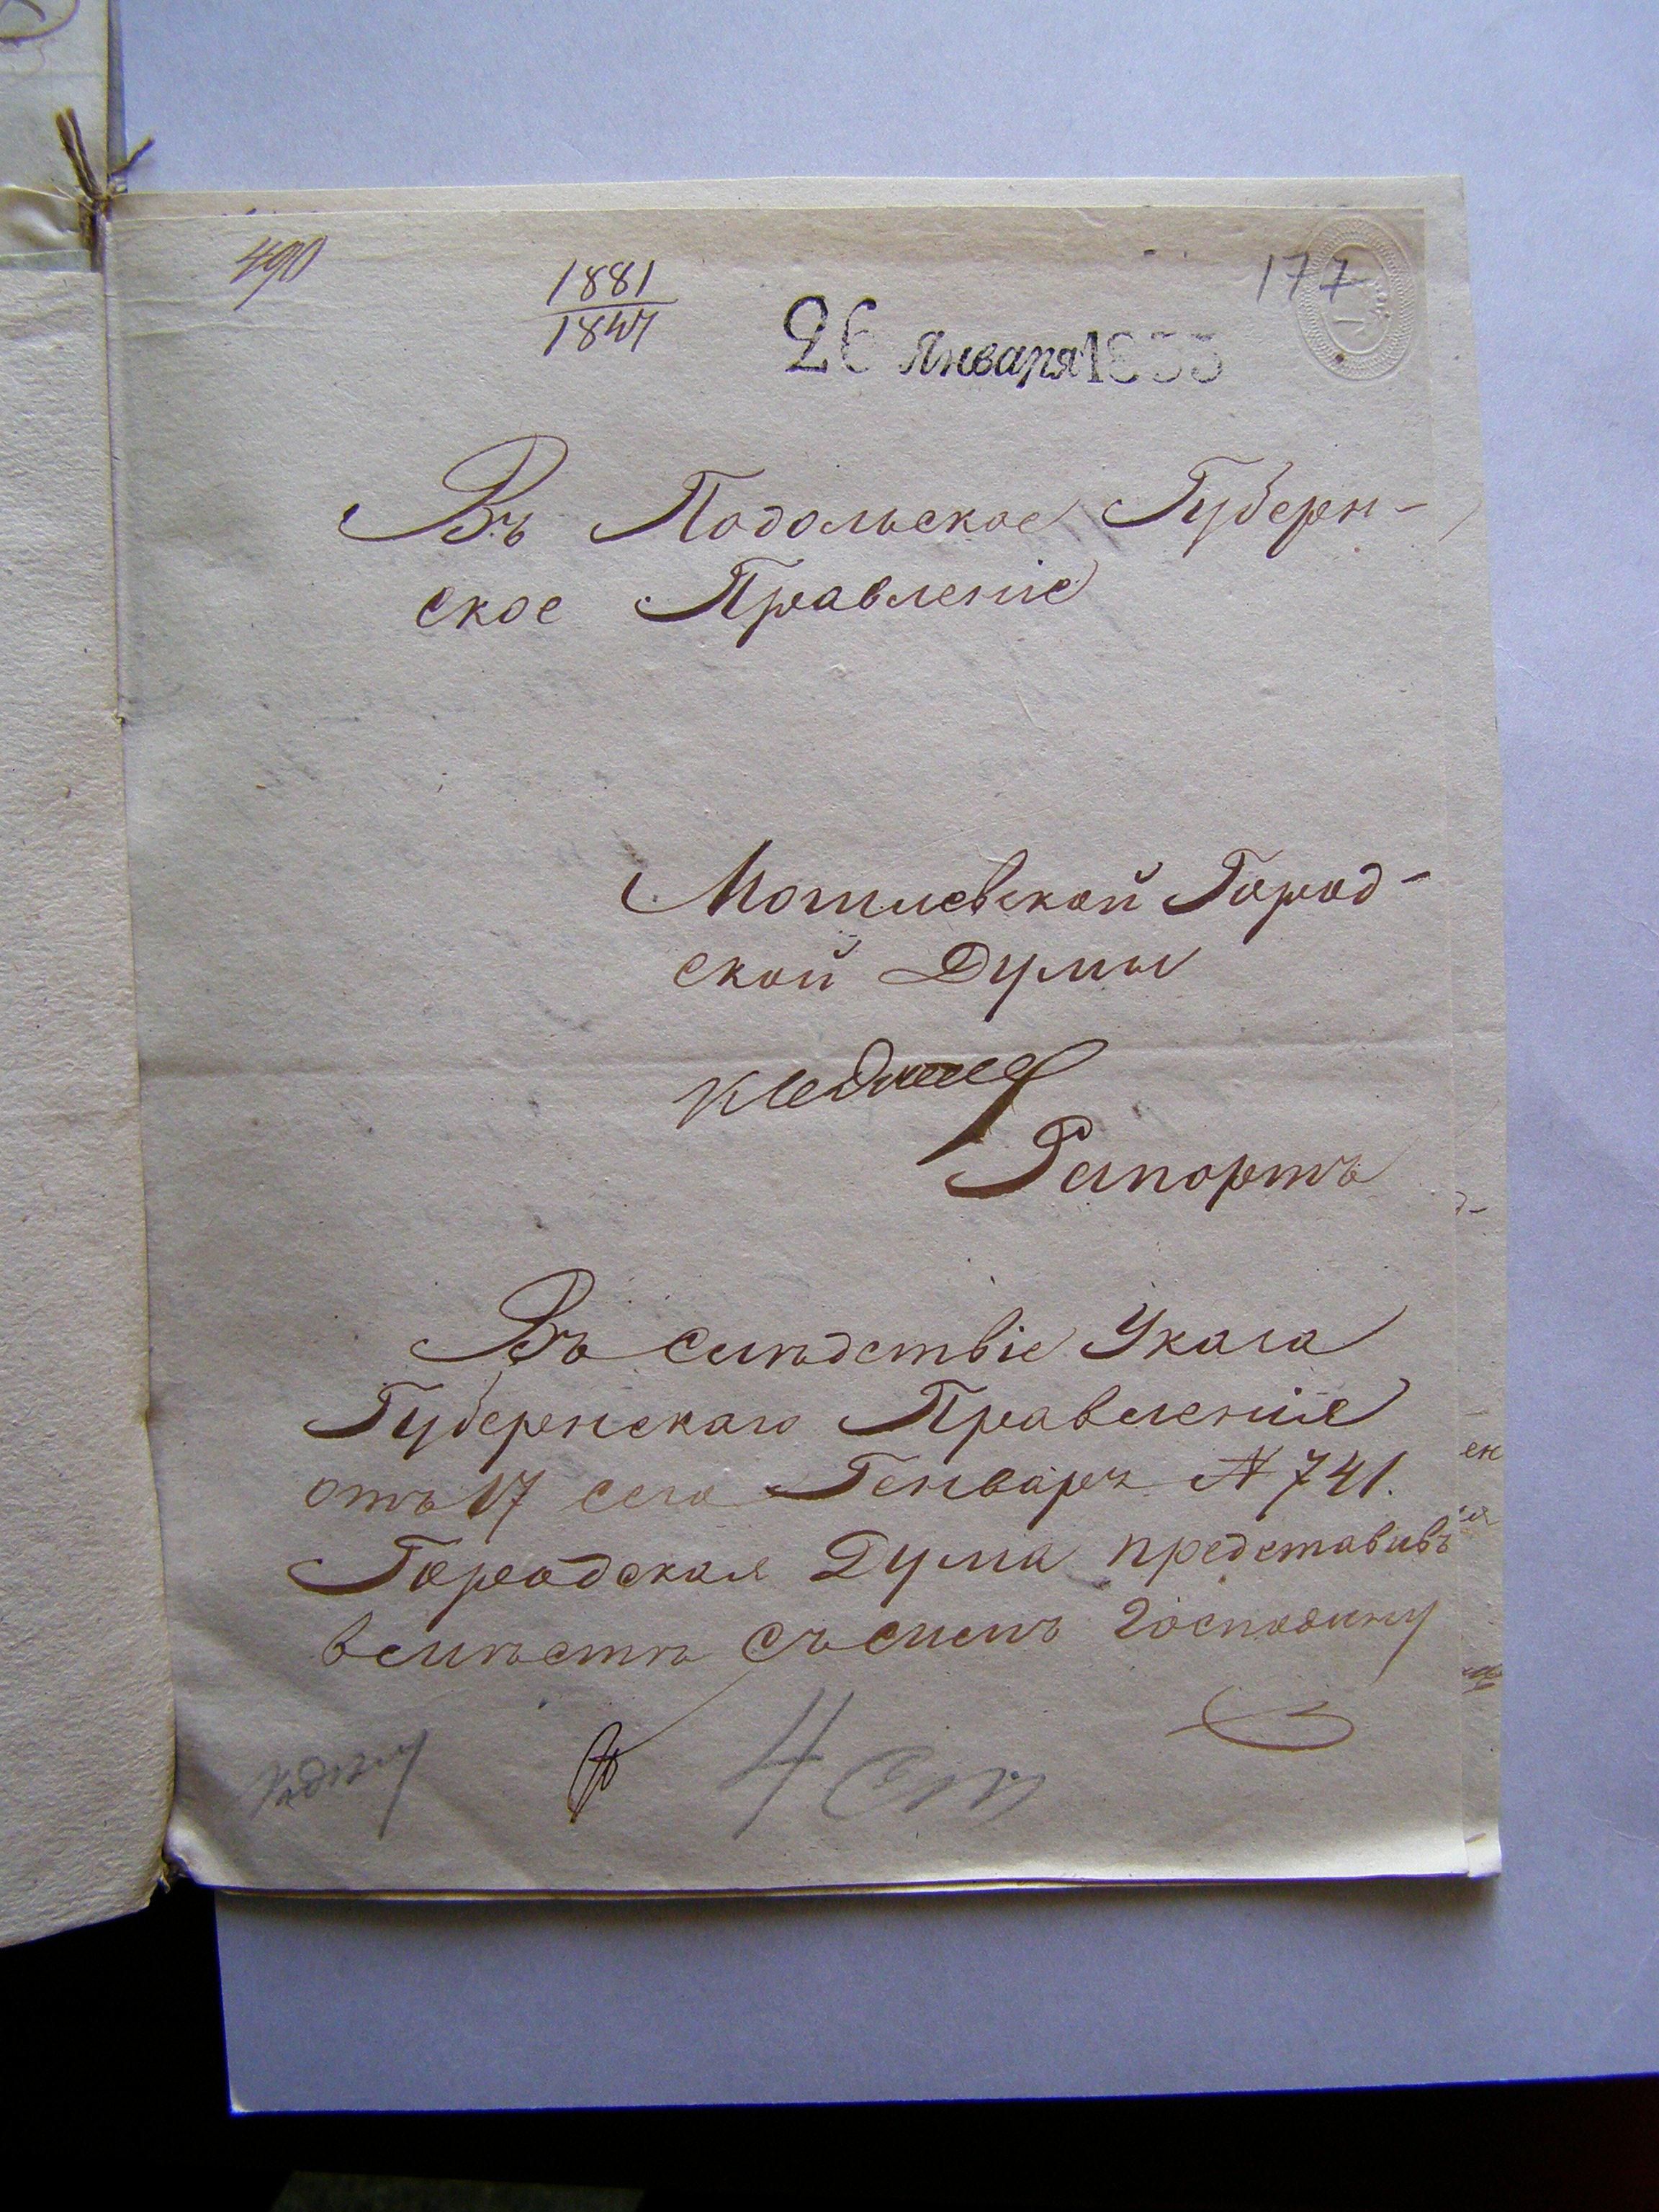 490
1881
1847
177
26 Января 1855
Въ Подольское Губерн-
ское Правленіе
Могилевской Город-
ской Думы
Рапортъ
Въ слѣдствіе Указа
Губернскаго Правленія
отъ 17 сего Генваря № 741.
Городская Дума представивъ
вмѣстѣ съ симъ Господину
4 Ст